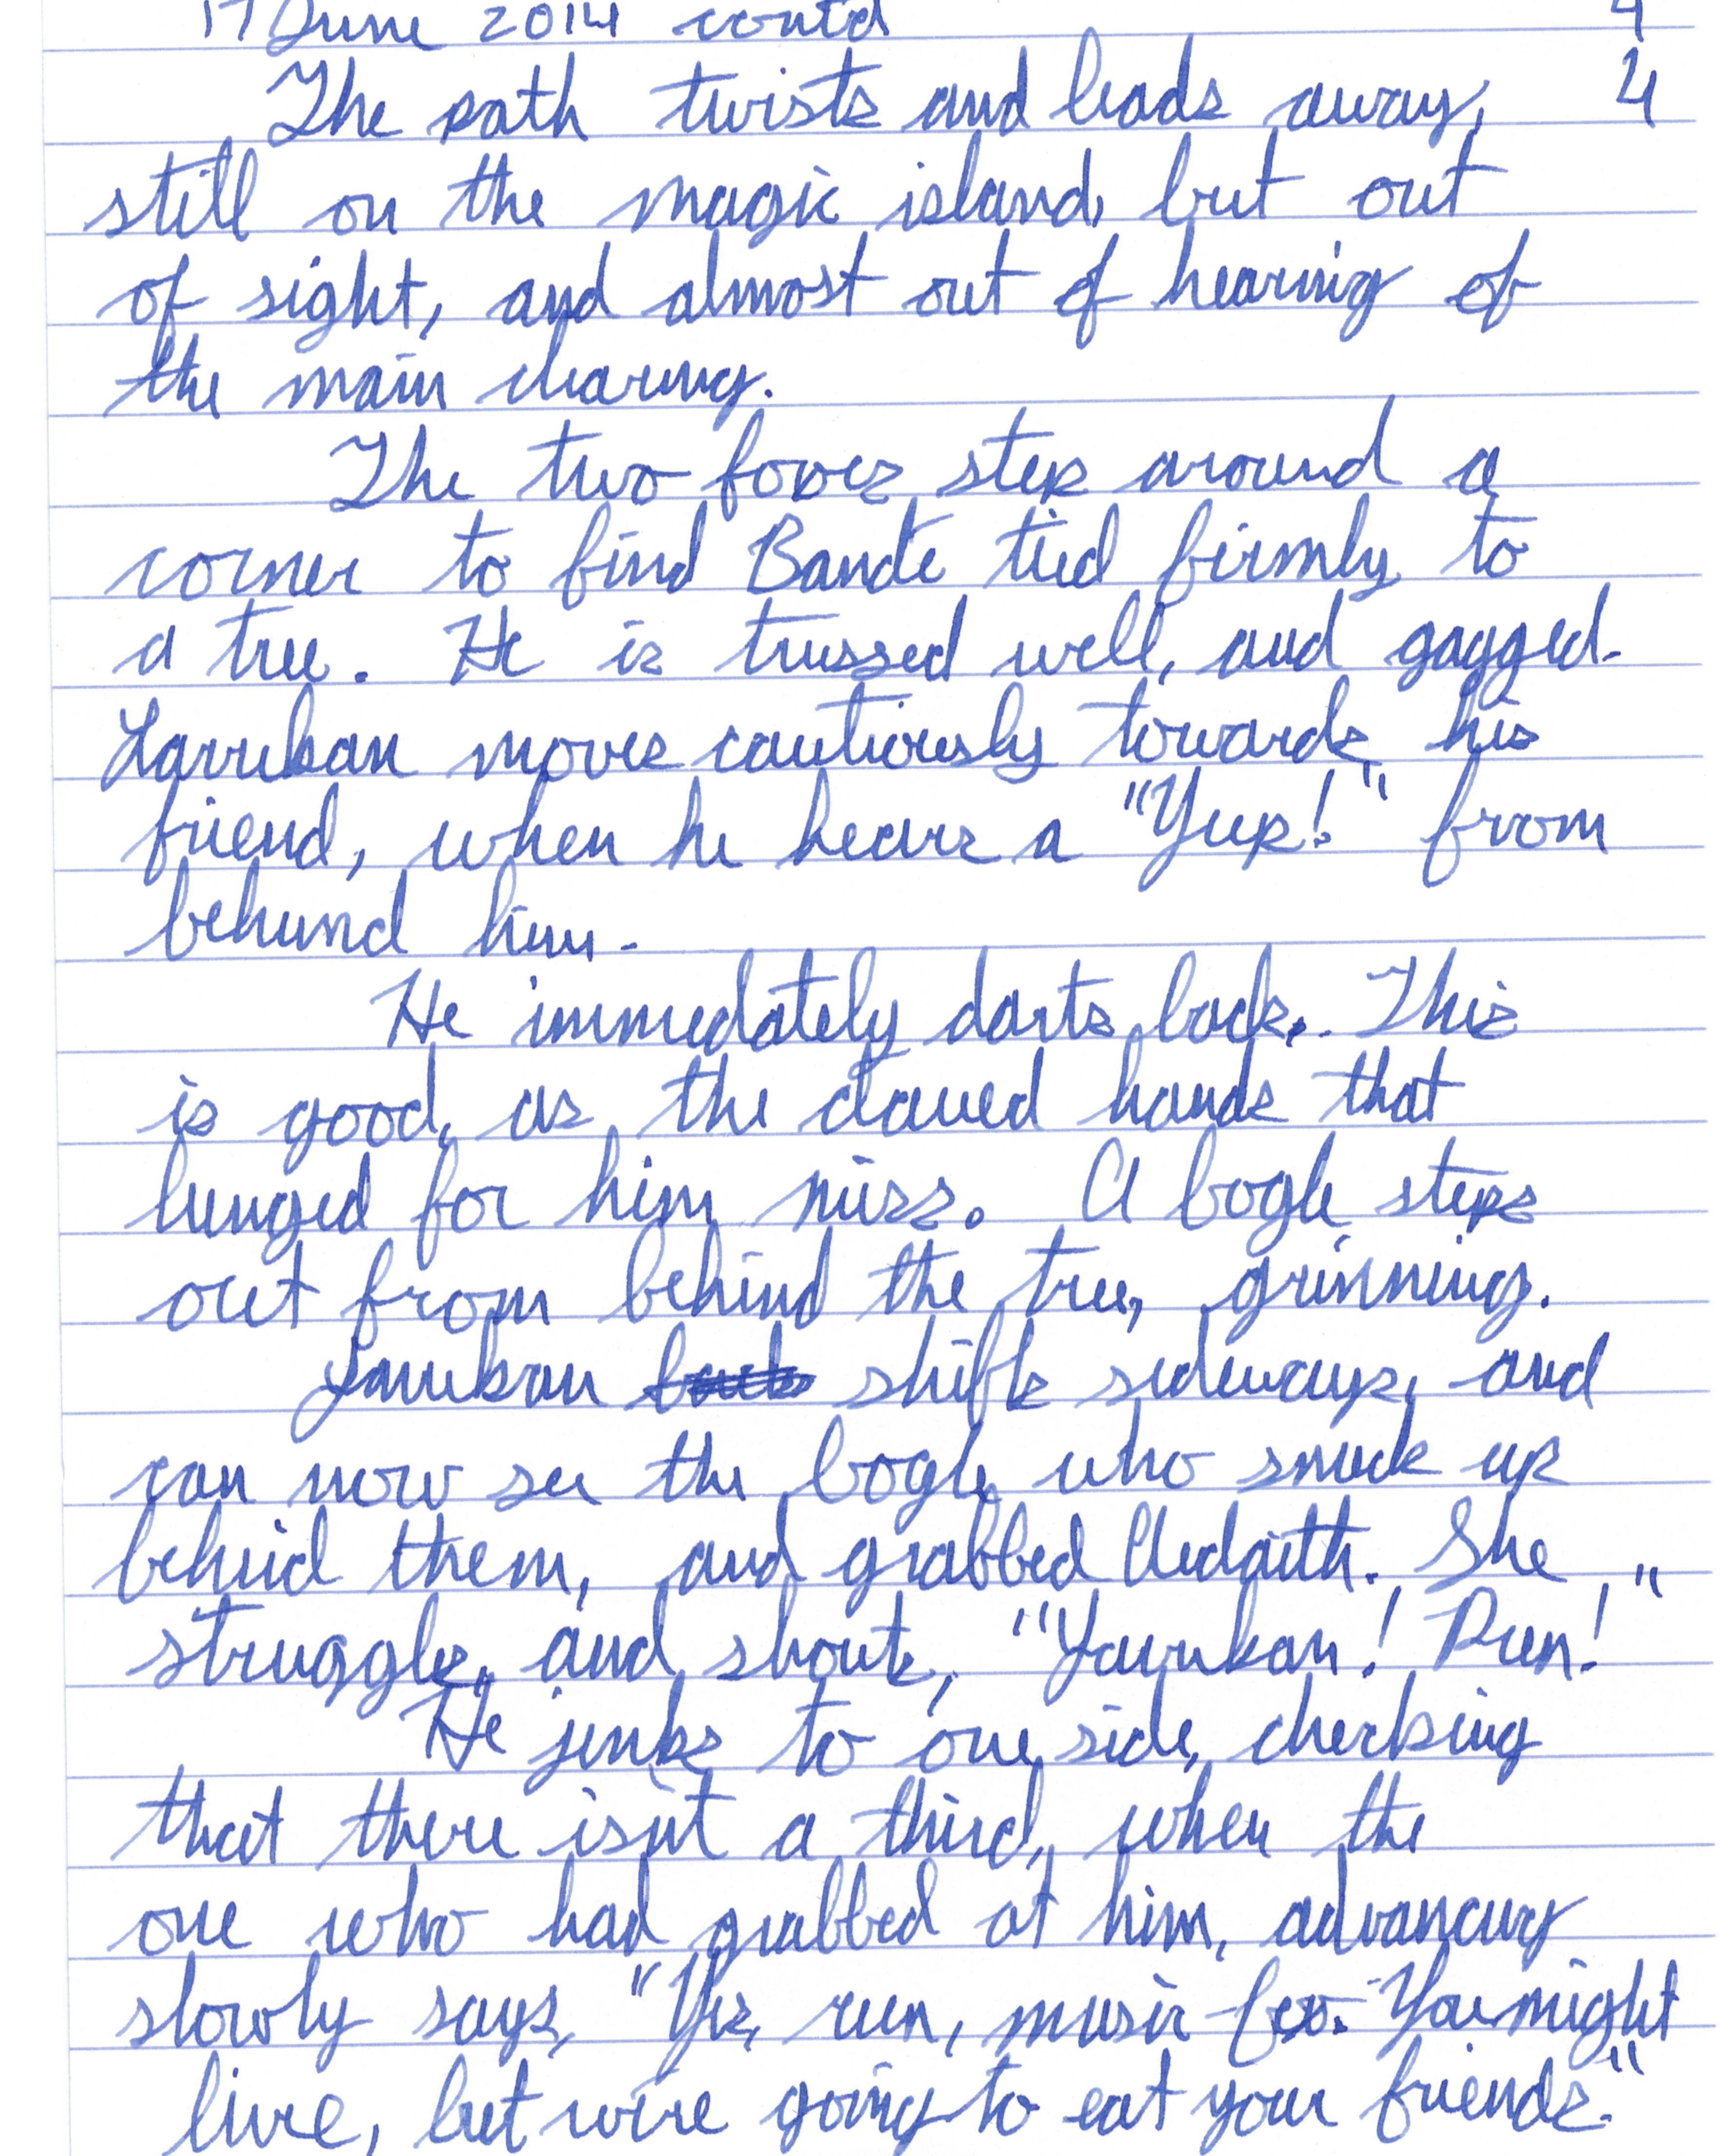 17 June 2014 contd 4
The path twists and leads away, 4
still on the magic island, but out
of sight, and almost out of hearing of
the main clearing.
The two foxes step around a
corner to find Bandit tied firmly to
a tree. He is trussed well, and gagged.
Yarrukan moves cautiously towards his
friend, when he hears a "Yup!" from
behind him.
He immediately darts back. This
is good, as the clawed hands that
lunged for him miss. A bogle steps
out from behind the tree, grinning.
Yarrukan shifts sideways, and
can now see the bogle who snuck up
behind them, and grabbed. She
struggles, and shouts, "Yarrukan! Run!"
He jinks to one side, checking
that there isn't a third, when the
one who had grabbed at him, advancing
slowly says, "Yes, run, music fox. You might
live, but we're going to eat your friends."